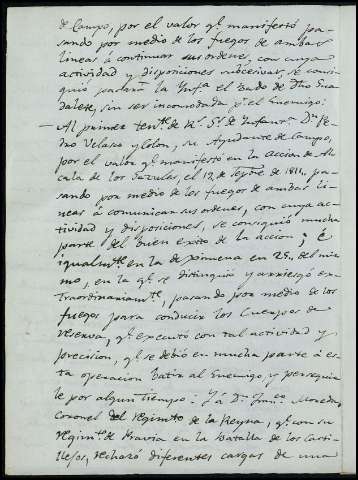 de Campo, por el valor q.e manifestó pa-
sando por medio de los fuegos de ambas
lineas à continuar sus ordenes, con cuya
actividad y disposiciones subcesivas, se consi-
guió pasara la Ynf.a el bado de Dho Gua-
dalete, sin ser incomodada p.r el Enemigo:
Al primer ten.te de R.s G.s de Infant.a D.n Pe-
dro Velasco y Colon, su Ayudante de Campo,
por el valor q.e manifestó en la accion de Al-
cala de los Gazulas, el 12, de Sep.re de 1811, pa-
sando por medio de los fuegos de ambas li-
neas á comunicar sus ordenes, con cuya ac-
tividad y disposiciones, se consiguió mucha
parte del buen exito de la accion; é
igualm.te en la de Ximena en 25,, del mis-
mo, en la q.e se distinguió y arriesgó ex-
traordinariam.te, pasando por medio de los
fuegos para conducir los Cuerpos de
reserva, q.e executó con tal actividad y
precision, q.e se debió en mucha parte à es-
ta operacion batir al Enemigo, y perseguir-
le por algun tiempo: Y á D.n Fran.co
Coronel del regim.to de la Reyna, q.e con su
regim.to de Pravia en la Batalla de los Casti-
llejos, rechazó diferentes cargas de una